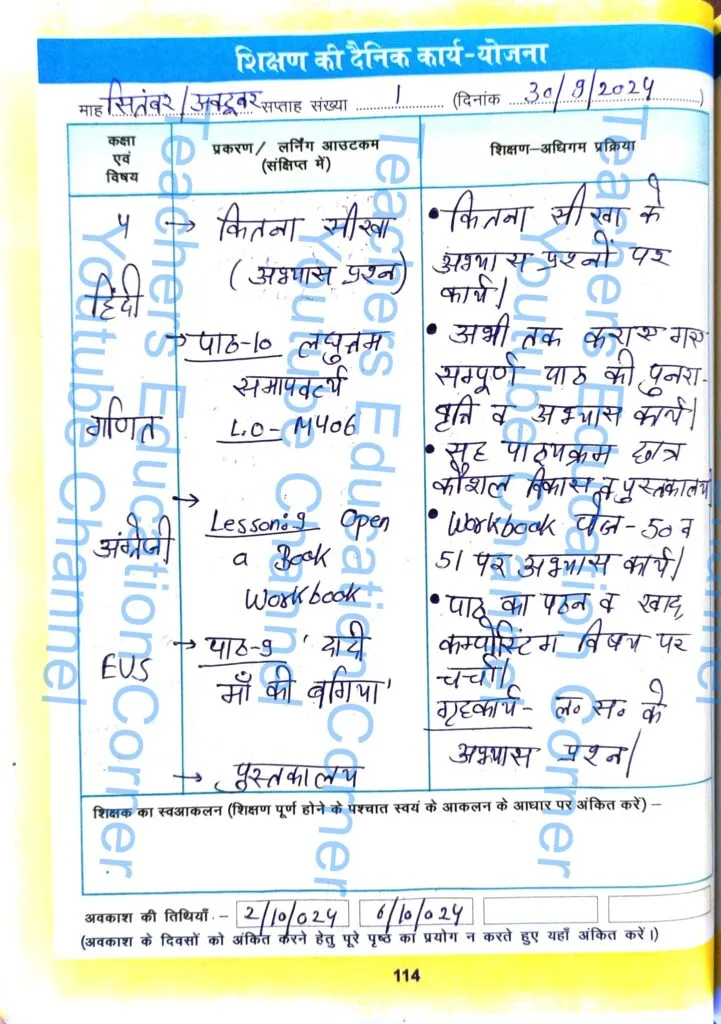 शिक्षण की दैनिक कार्य-योजना
माह सितंबर/अक्टूबर सप्ताह संख्या 1 (दिनांक 30/9/2024)
कक्षा एवं विषय
प्रकरण/ लर्निंग आउटकम (संक्षिप्त में)
शिक्षण-अधिगम प्रक्रिया
5 → कितना सीखा
(अभ्यास प्रश्न)
हिंदी
→ पाठ-10 लघुत्तम
समापवर्त्य
गणित
L.O- M406
→
अंग्रेजी
Lesson:9 Open
a Book
Workbook
EVS
→ पाठ-9 'दादी
माँ की बगिया'
→ पुस्तकालय
• कितना सीखा के
अभ्यास प्रश्नों पर
कार्य।
• अभी तक कराए गए
सम्पूर्ण पाठ की पुनरा-
वृत्ति व अभ्यास कार्य।
• सह पाठ्यक्रम छात्र
कौशल विकास व पुस्तकालय।
• Workbook पेज-50 व
51 पर अभ्यास कार्य।
• पाठ का पठन व खाद,
कम्पोस्टिंग विषय पर
चर्चा।
गृहकार्य- ल॰ स॰ के
अभ्यास प्रश्न।
शिक्षक का स्वआकलन (शिक्षण पूर्ण होने के पश्चात स्वयं के आकलन के आधार पर अंकित करें) –
अवकाश की तिथियाँ - 2/10/024 6/10/024
(अवकाश के दिवसों को अंकित करने हेतु पूरे पृष्ठ का प्रयोग न करते हुए यहाँ अंकित करें।)
114
Teachers Education Corner
Youtube Channel
Teachers Education Corner
Youtube Channel
Teachers Education Corner
Youtube Channel